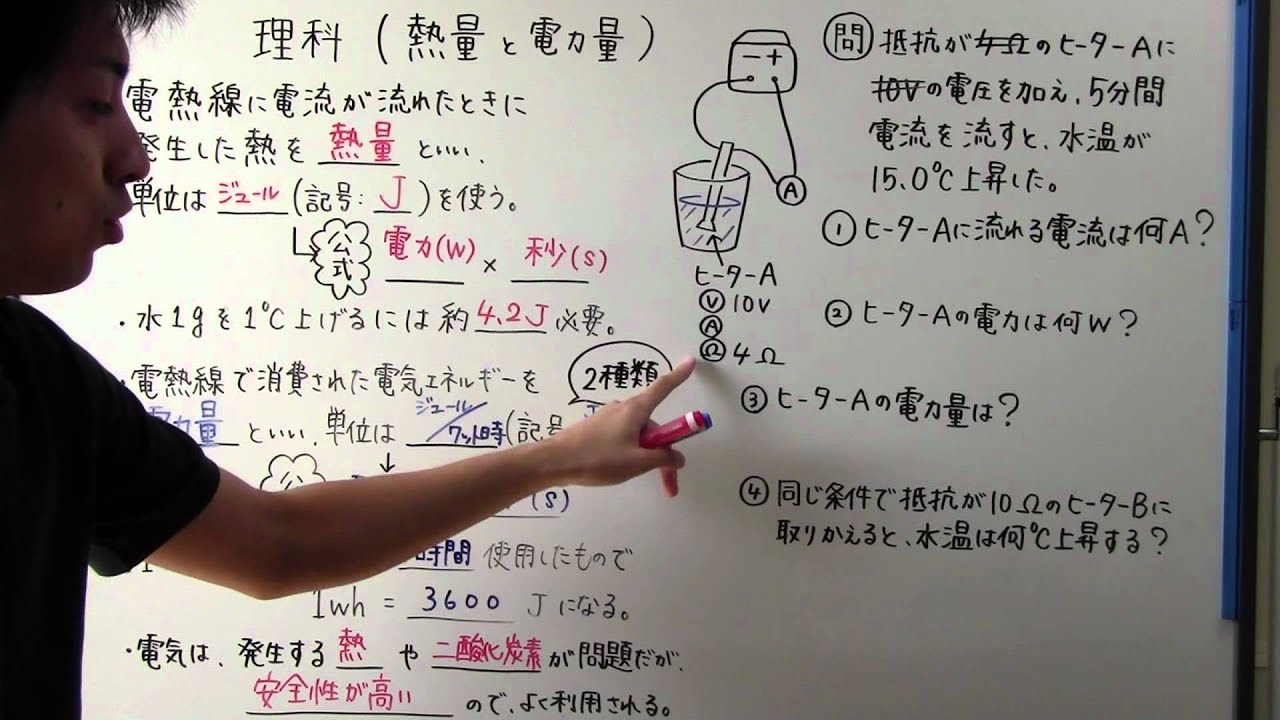 理科(熱量と電力量)
・電熱線に電流が流れたときに
発生した熱を 熱量 といい、
単位は ジュール (記号: J )を使う。
公式 電力(W) × 秒(s)
・水1gを1℃上げるには約4.2J必要。
・電熱線で消費された電気エネルギーを
2種類
電力量 といい、単位は ジュール/ワット時 (記号
公
(s)
時間 使用したもので
1wh = 3600 Jになる。
・電気は、発生する 熱 や 二酸化炭素 が問題だが、
安全性が高い ので、よく利用される。
− +
A
ヒーターA
V 10V
A
Ω 4Ω
問 抵抗が4ΩのヒーターAに
10Vの電圧を加え、5分間
電流を流すと、水温が
15.0℃上昇した。
① ヒーターAに流れる電流は何A?
② ヒーターAの電力は何W?
③ ヒーターAの電力量は?
④ 同じ条件で抵抗が10ΩのヒーターBに
取りかえると、水温は何℃上昇する?